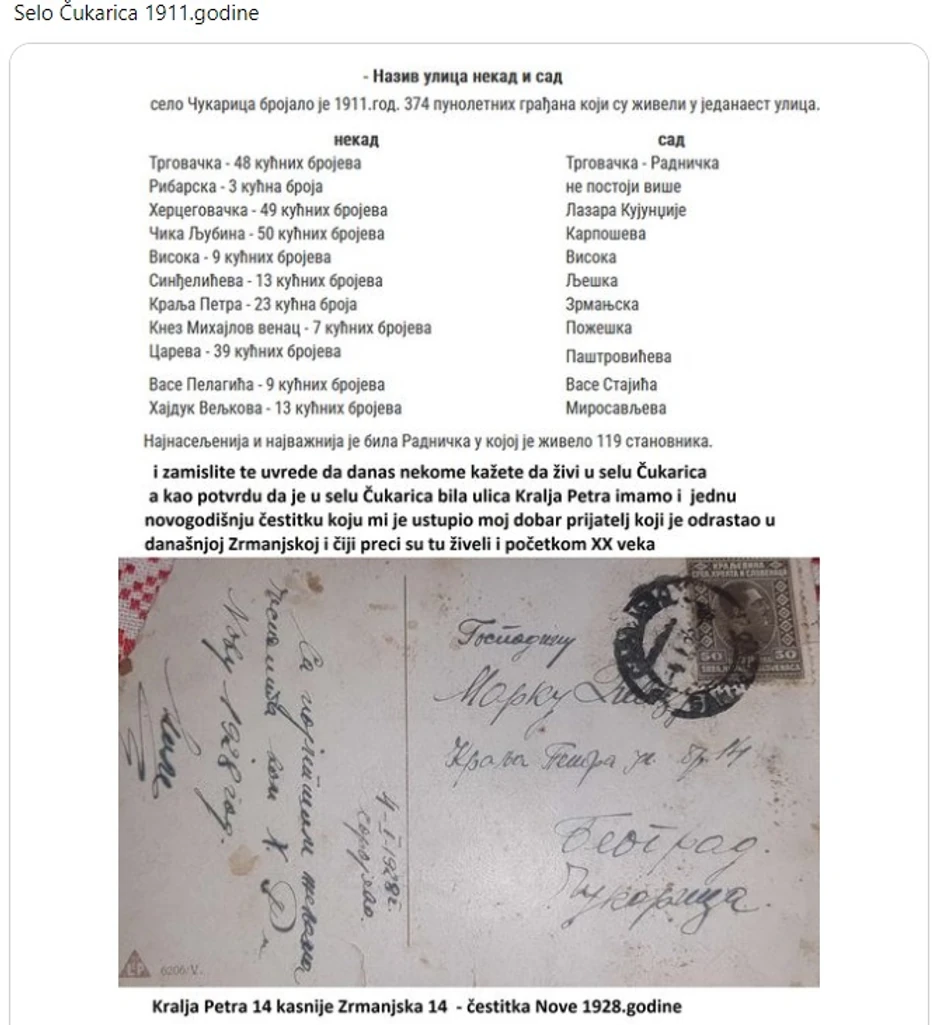 Selo Čukarica 1911.godine
- Назив улица некад и сад
село Чукарица бројало је 1911.год. 374 пунолетних грађана који су живели у једанаест улица.
некад сад
Трговачка - 48 кућних бројева Трговачка - Радничка
Рибарска - 3 кућна броја не постоји више
Херцеговачка - 49 кућних бројева Лазара Кујунџије
Чика Љубина - 50 кућних бројева Карпошева
Висока - 9 кућних бројева Висока
Синђелићева - 13 кућних бројева Љешка
Краља Петра - 23 кућна броја Зрмањска
Кнез Михајлов венац - 7 кућних бројева Пожешка
Царева - 39 кућних бројева Паштровићева
Васе Пелагића - 9 кућних бројева Васе Стајића
Хајдук Вељкова - 13 кућних бројева Миросављева
Најнасељенија и најважнија је била Радничка у којој је живело 119 становника.
i zamislite te uvrede da danas nekome kažete da živi u selu Čukarica
a kao potvrdu da je u selu Čukarica bila ulica Kralja Petra imamo i jednu
novogodišnju čestitku koju mi je ustupio moj dobar prijatelj koji je odrastao u
današnjoj Zrmanjskoj i čiji preci su tu živeli i početkom XX veka
КРАЉЕВИНА
СРБА, ХРВАТА И СЛОВЕНАЦА
50 50
Господину
Марку
Краља Петра ул. бр. 14
Београд.
Чукарица.
4-I-1928г.
Сарајево.
Са
Нову 1928 год.
6206/V.
Kralja Petra 14 kasnije Zrmanjska 14 - čestitka Nove 1928.godine